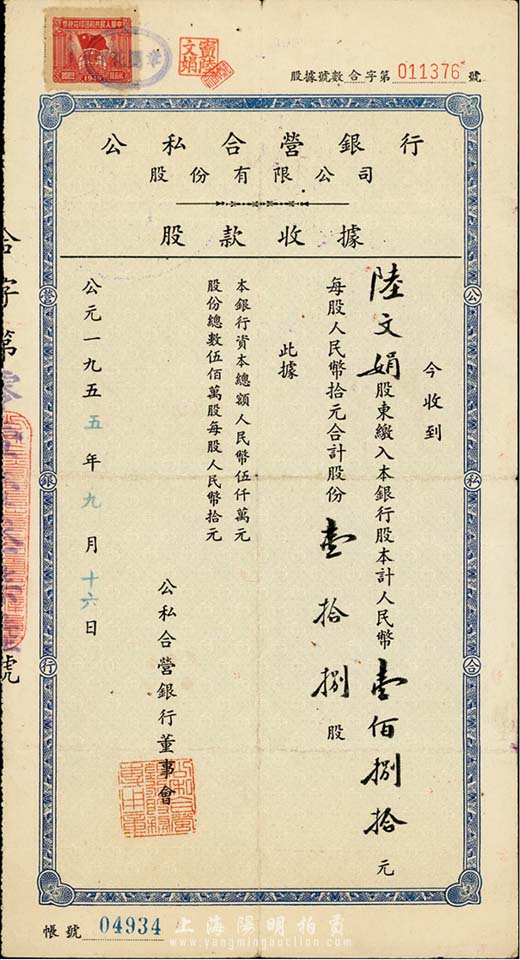 中華人民共和國印花稅票
1949
竇陸文娟
股據號數 合字第 011376 號
公私合營銀行
股份有限公司
股款收據
今收到
陸文娟股東繳入本銀行股本計人民幣壹佰捌拾元
每股人民幣拾元合計股份壹拾捌股
此據
本銀行資本總額人民幣伍仟萬元
股份總數伍佰萬股每股人民幣拾元
公私合營銀行董事會
公元一九五五年九月十六日
公私合營銀行
合字第
號
帳號 04934
上海陽明拍賣
www.yangmingauction.com